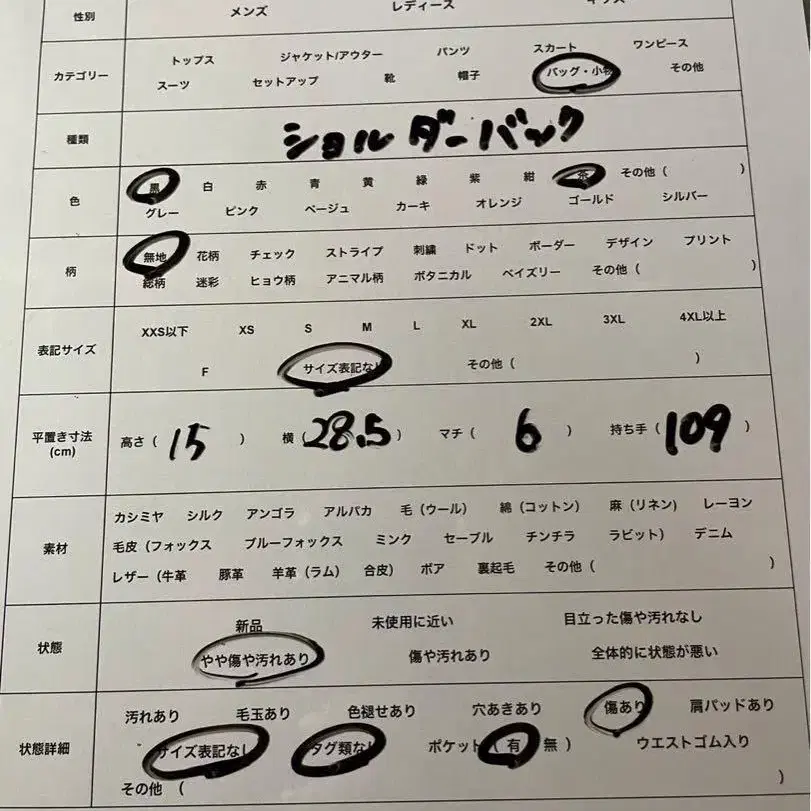 性別 メンズ レディース キッズ
カテゴリー トップス ジャケット/アウター パンツ スカート ワンピース
スーツ セットアップ 靴 帽子 バッグ・小物 その他
種類 ショルダーバック
色 黒 白 赤 青 黄 緑 紫 紺 茶 その他 ( )
グレー ピンク ベージュ カーキ オレンジ ゴールド シルバー
柄 無地 花柄 チェック ストライプ 刺繍 ドット ボーダー デザイン プリント
総柄 迷彩 ヒョウ柄 アニマル柄 ボタニカル ペイズリー その他 ( )
表記サイズ XXS以下 XS S M L XL 2XL 3XL 4XL以上
F サイズ表記なし その他 ( )
平置き寸法 (cm) 高さ ( 15 ) 横 ( 28.5 ) マチ ( 6 ) 持ち手 ( 109 )
素材 カシミヤ シルク アンゴラ アルパカ 毛 (ウール) 綿 (コットン) 麻 (リネン) レーヨン
毛皮 (フォックス ブルーフォックス ミンク セーブル チンチラ ラビット) デニム
レザー (牛革 豚革 羊革 (ラム) 合皮) ボア 裏起毛 その他 ( )
状態 新品 未使用に近い 目立った傷や汚れなし
やや傷や汚れあり 傷や汚れあり 全体的に状態が悪い
状態詳細 汚れあり 毛玉あり 色褪せあり 穴あきあり 傷あり 肩パッドあり
サイズ表記なし タグ類なし ポケット ( 有 無 ) ウエストゴム入り
その他 ( )